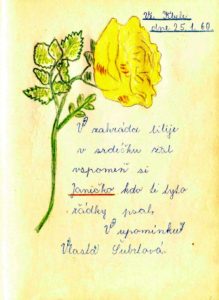 Ve
dne 25.1.60.
V zahrádce lilije
v srdéčku žal
vzpomeň si
Janičko kdo ti tyto
řádky psal.
V upomínku
Vlasta Šubrtová.